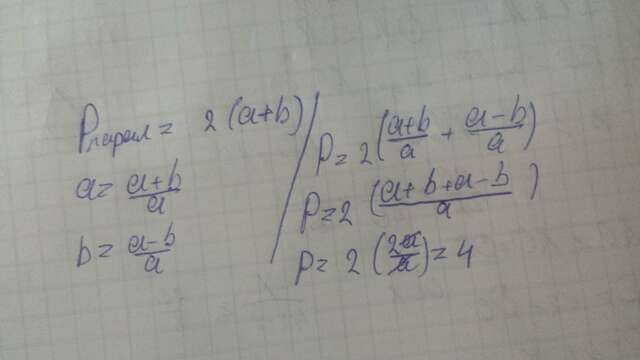 Pпарал = 2(a+b)
a = a+b/a
b = a-b/a
P = 2(a+b/a + a-b/a)
P = 2(a+b+a-b/a)
P = 2(2a/a) = 4